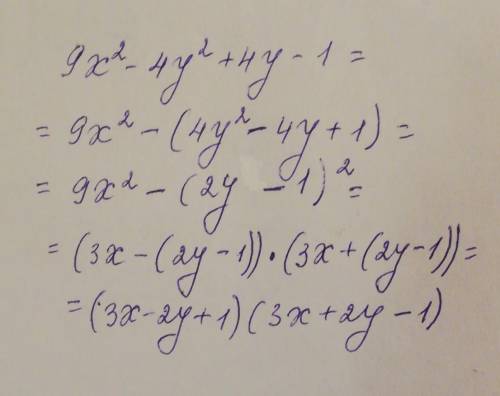 9x² - 4y² + 4y - 1 =
= 9x² - (4y² - 4y + 1) =
= 9x² - (2y - 1)² =
= (3x - (2y - 1)) · (3x + (2y - 1)) =
= (3x - 2y + 1) (3x + 2y - 1)